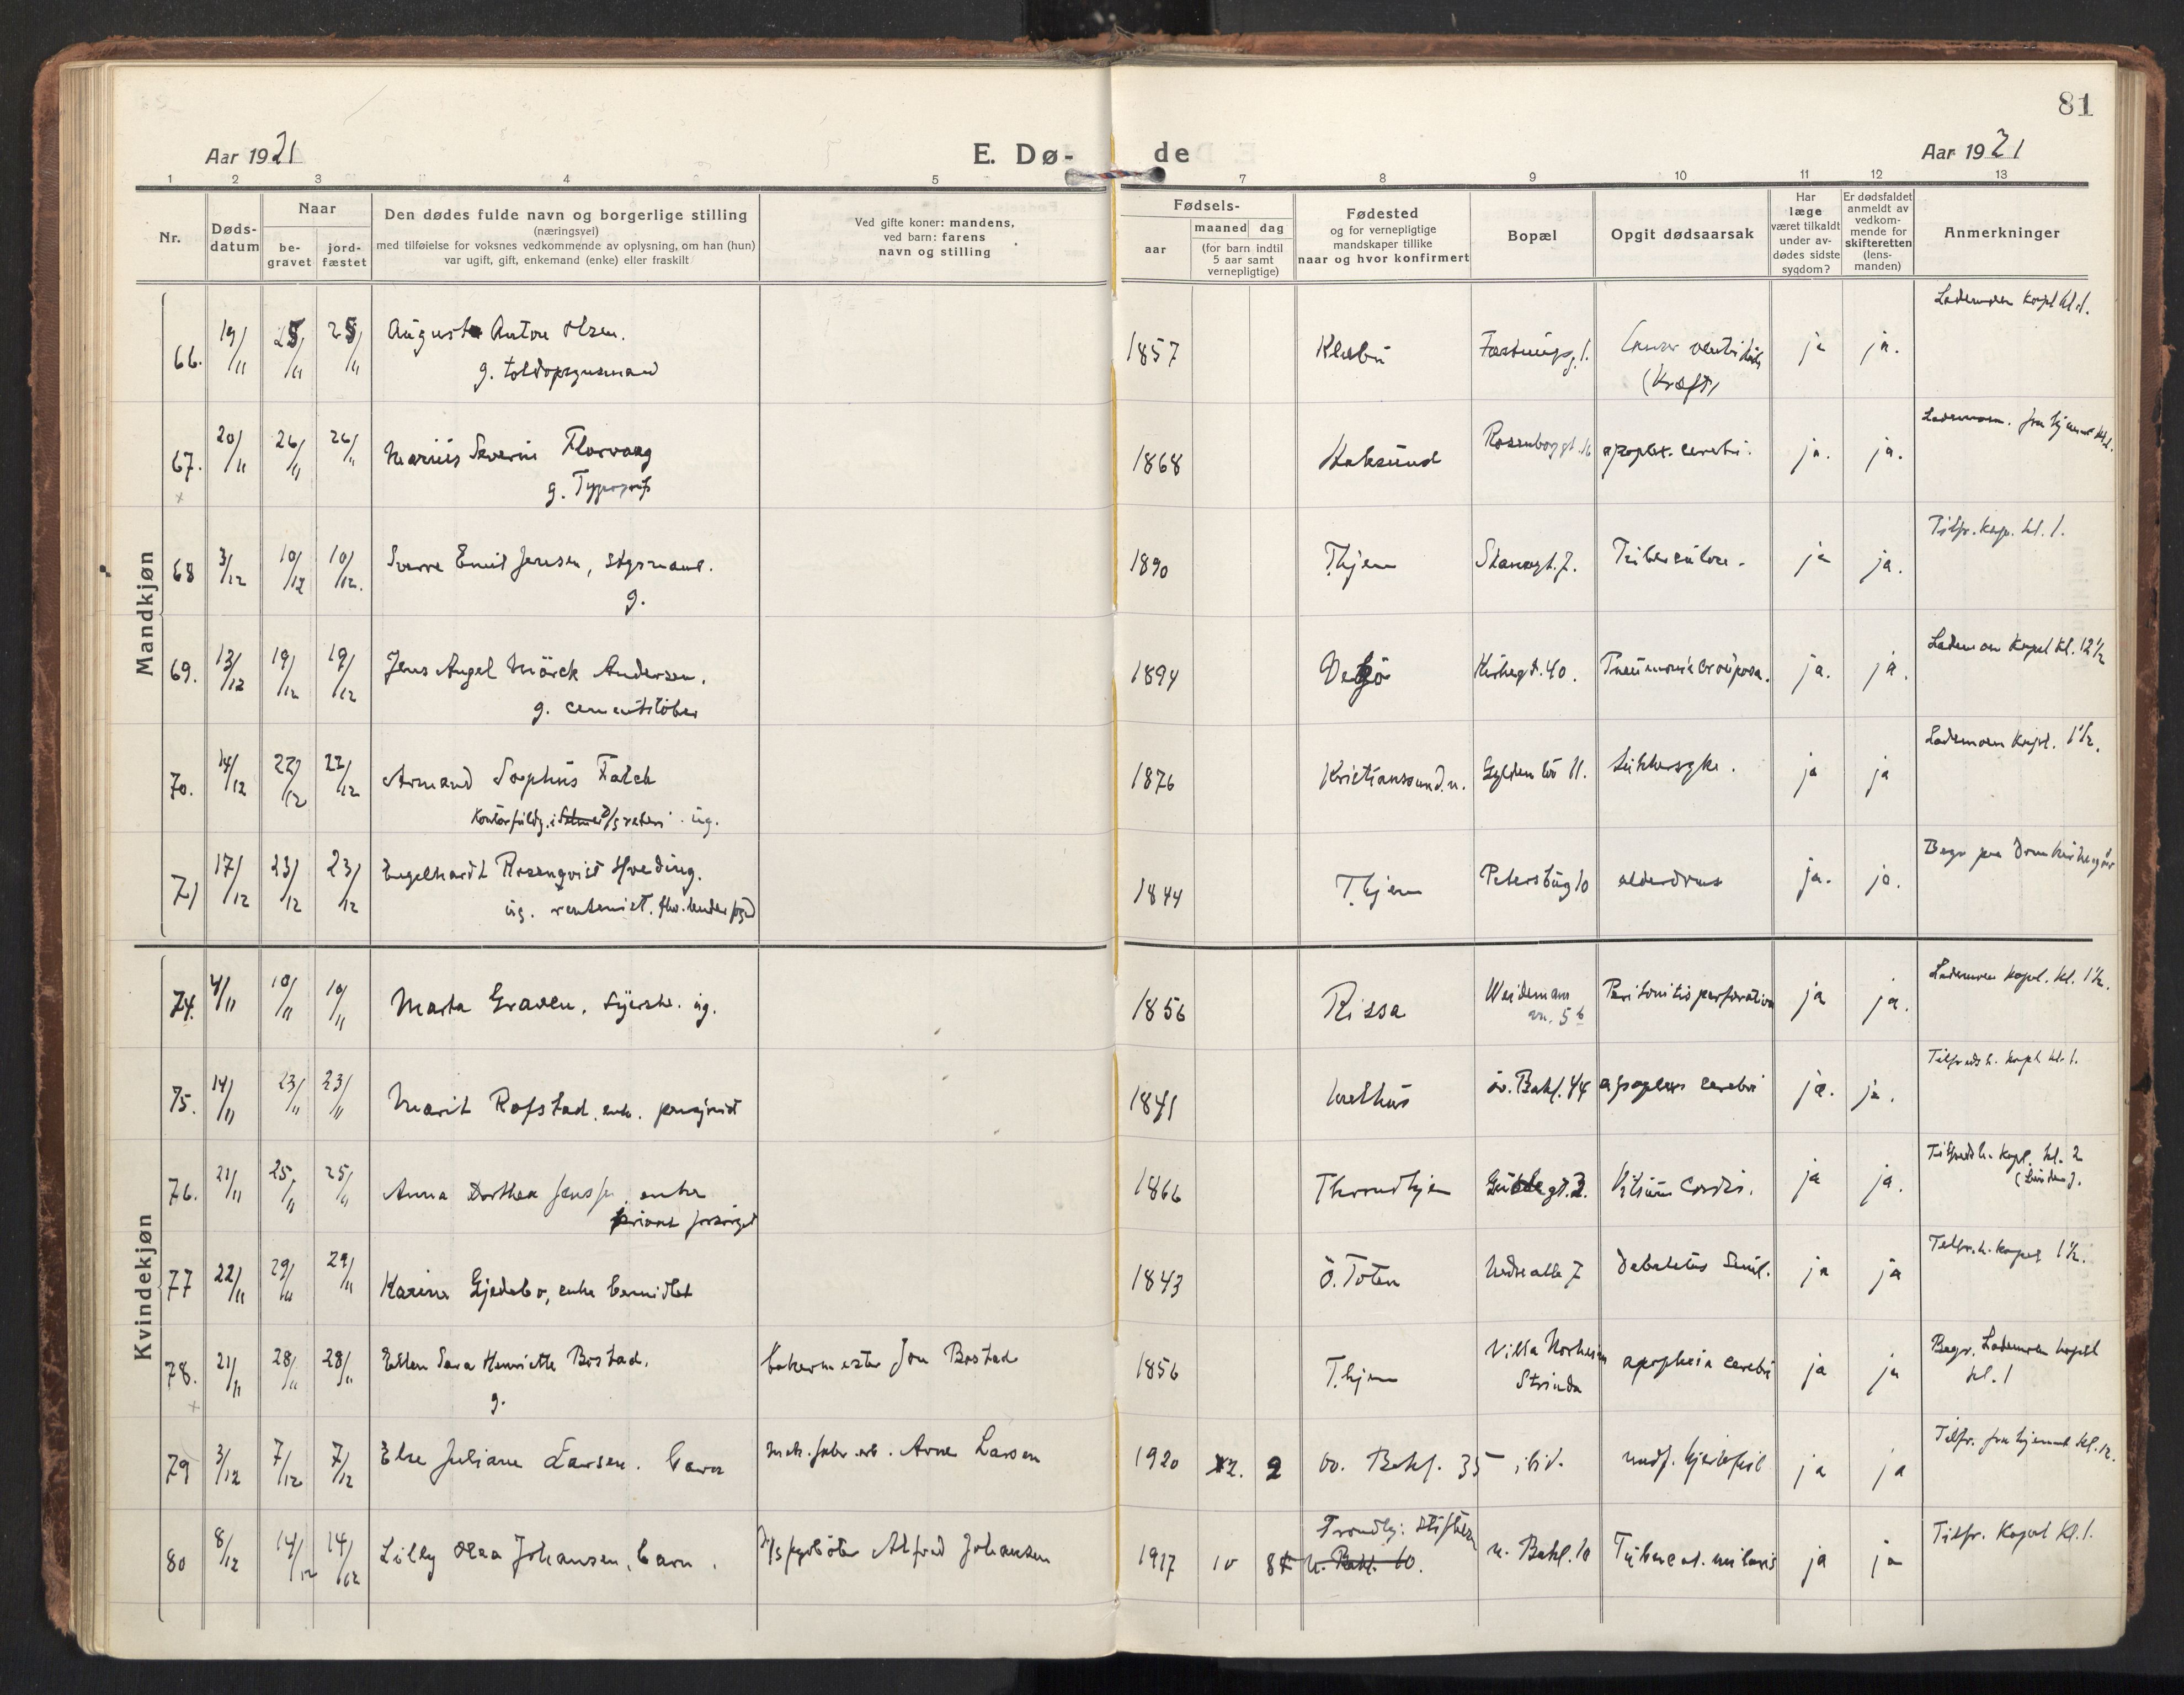 81
Aar 1921
E. Dø-
de
Aar 1921
1 2 3 4 5 7 8 9 10 11 12 13
Nr.
Døds-
datum
Naar
be-
gravet
jord-
fæstet
Den dødes fulde navn og borgerlige stilling
(næringsvei)
med tilføielse for voksnes vedkommende av oplysning, om han (hun)
var ugift, gift, enkemand (enke) eller fraskilt
Ved gifte koner: mandens,
ved barn: farens
navn og stilling
Fødsels-
aar
maaned dag
(for barn indtil
5 aar samt
vernepligtige)
Fødested
og for vernepligtige
mandskaper tillike
naar og hvor konfirmert
Bopæl
Opgit dødsaarsak
Har
læge
været tilkaldt
under av-
dødes sidste
sygdom?
Er dødsfaldet
anmeldt av
vedkom-
mende for
skifteretten
(lens-
manden)
Anmerkninger
Mandkjøn
66. 19/11 25/11 25/11 August Anton Olsen. 1857 Klæbu ja ja. Lademoen Kapel kl. 1.
g. toldopsynsmand (Kræft)
67. 20/11 26/11 26/11 Marius Severin Florvaag 1868 Hoksund Rosenborggt. 16 apoplex. cerebri. ja. ja. Lademoen. fra hjemmet kl. 1.
x g. Typograf
68 3/12 10/12 10/12. Sverre Emil Jensen, 1890 T.hjem ja ja. Tilfr. kap. kl. 1.
g.
69. 13/12 19/12 19/12 Jens Angel Mörck Andersen. 1894 Kirkegt. 40. Pneumonia crouposa. ja. ja. Lademoen Kapel kl. 12 1/2
g. cementstöber
70. 14/12 22/12 22/12 Armand Sophus Falch 1876 Kristianssund. n. Gyldenlö 11. Sukkersyke. ja ja Lademoen Kapel. 1 1/2.
ug.
71 17/12 23/12 23/12 Engelhardt Rosenqvist Hveding. 1844 T.hjem Petersbug 10 alderdom ja. ja. Begr paa Domkirkegår
ug. rentenist.
Kvindekjøn
74. 4/11 10/11 10/11 Marta Graven, syerske. ug. 1856 Rissa Weidemans ja ja. Lademoen kapel. kl. 1 1/2.
vn. 5 b Peritonitis perforativa
75. 14/11 23/11 23/11 Marit Rofstad, enk. 1841 Melhus öv. Bakl. 44 apoplexi cerebri ja. ja. Tilfreds h. kapel kl. 1.
76. 21/11 25/11 25/11 Anna Dorthea enke 1866 Throndhjem Vitium Cordis. ja ja. Tilfredsh. Kapl. kl. 2
privat forsørget
77 22/11 29/11 29/11 Karine Gjedebo, enke 1843 Ö. Toten Nedre alle 7 Debilitas Senil. ja ja Tilfr. h. kapel 1 1/2.
78. 21/11 28/11 28/11 Ellen Sara Henriette Bostad. bakermester Jon Bostad 1856 T.hjem Villa Norheim apoplexia cerebri ja ja Begr. Lademoen kapell
x g. Strinda kl. 1
79 3/12 7/12 7/12 Else Juliane Larsen. barn mek. fabr. arb. Arne Larsen 1920 2. 2 öv. Bakl. 35 ibid. medf. hjertefeil ja ja Tilfr. fra hjemmet kl. 12.
80 8/12 14/12 14/12 Lilly Olea Johansen, barn. Alfred Johansen 1917 10 8 Trondhj: Stiftelsen
n. Bakl. 10. n. Bakl. 10 Tubercul. miliaris ja ja Tilfr. Kapel kl. 1.